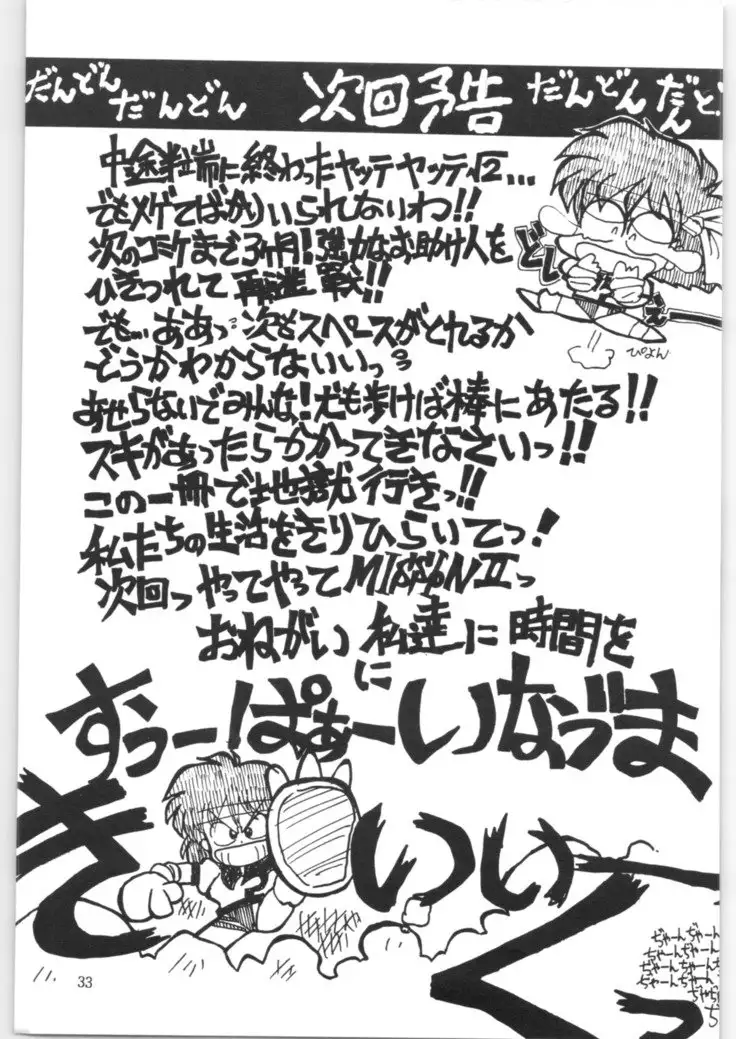 だんどん だんどん 次回予告 だんどん だんど
中途半端に終わったヤッテヤッテ√2...
でもメゲてばかりいられないわっ!!
次のコミケまで3ヶ月!強力なお助け人を
ひきつれて再挑戦!!
でも…ああっ次もスペースがとれるか
どうかわからないいっ
あせらないでみんな!犬も歩けば棒にあたる!!
スキがあったらかかってきなさいっ!!
この一冊で地獄行きっ!!
私たちの生活をきりひらいてっ!
次回っやってやってMISSION IIっ
おねがい私達に時間を
に
すぅーぱぁーいなづま
きぃぃーくっ
ぴょん
ぢゃーんぢゃーん
ちゃーんちゃーん
ぢゃーんぢゃーん
33